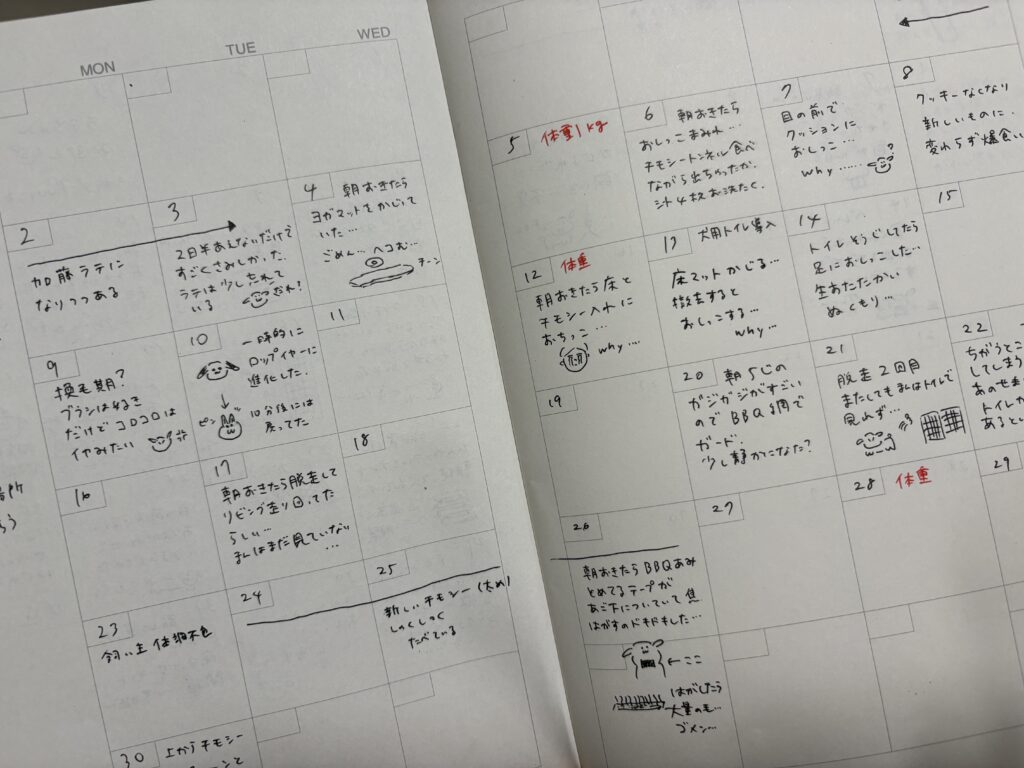 MON
TUE
WED
2
加藤ラテに
なりつつある
3
2日半あえないだけで
すごくさみしかった.
ラテは少し忘れて
いる
だれ!
4
朝おきたら
ヨガマットをかじって
いた…
ごめん… ヘコむ…
チーン
9
換毛期?
ブラシは好き
だけど コロコロは
イヤみたい
10
一時的に
ロップイヤーに
進化した.
ピン
10分後には
戻ってた
11
16
17
朝おきたら脱走して
リビング走り回ってた
らしい…
まんはまだ見ていない
…
18
23
飼い主 体調不良
24
25
新しいチモシー(太め)
しゃくしゃく
たべている
30
上からチモシー
5
体重1kg
6
朝おきたら
おしっこまみれ…
チモシートンネル食べ
ながら出ちゃったか.
シート4枚お洗たく.
7
目の前で
クッションに
おしっこ…
why……
?
8
クッキーなくなり
新しいものに.
変わらず爆食い
12
体重
朝おきたら床と
チモシー入れに
おちっこ…
why…
13
犬用トイレ導入
床マットかじる…
撤去すると
おしっこする…
why…
14
トイレそうじしてたら
足におしっこした…
生あたたかい
ぬくもり…
15
19
20
朝5じの
ガジガジがすごい
ので BBQ用網で
ガード.
少し静かになた?
21
脱走2回目
またしてもまんはトイレで
見れず…
22
ちがうとこ
してしまう
あのせま
トイレか
あると
26
朝おきたら BBQあみ
とめてるテープが
あご下についていて焦
はがすのドキドキした…
←ここ
はがしたら
大量のモ…
ゴメン…
27
28
体重
29